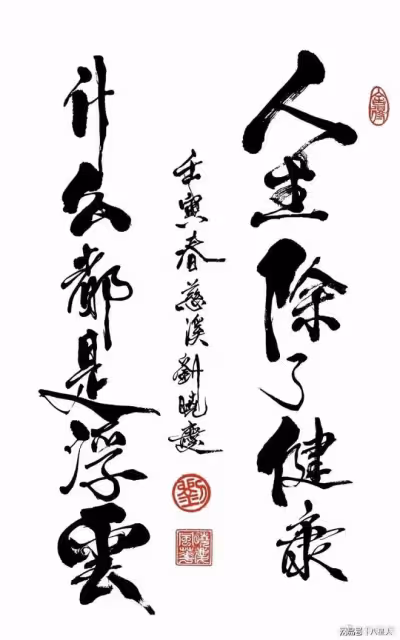 人生除了健康
什么都是浮雲
壬寅春慈溪劉曉慶
劉